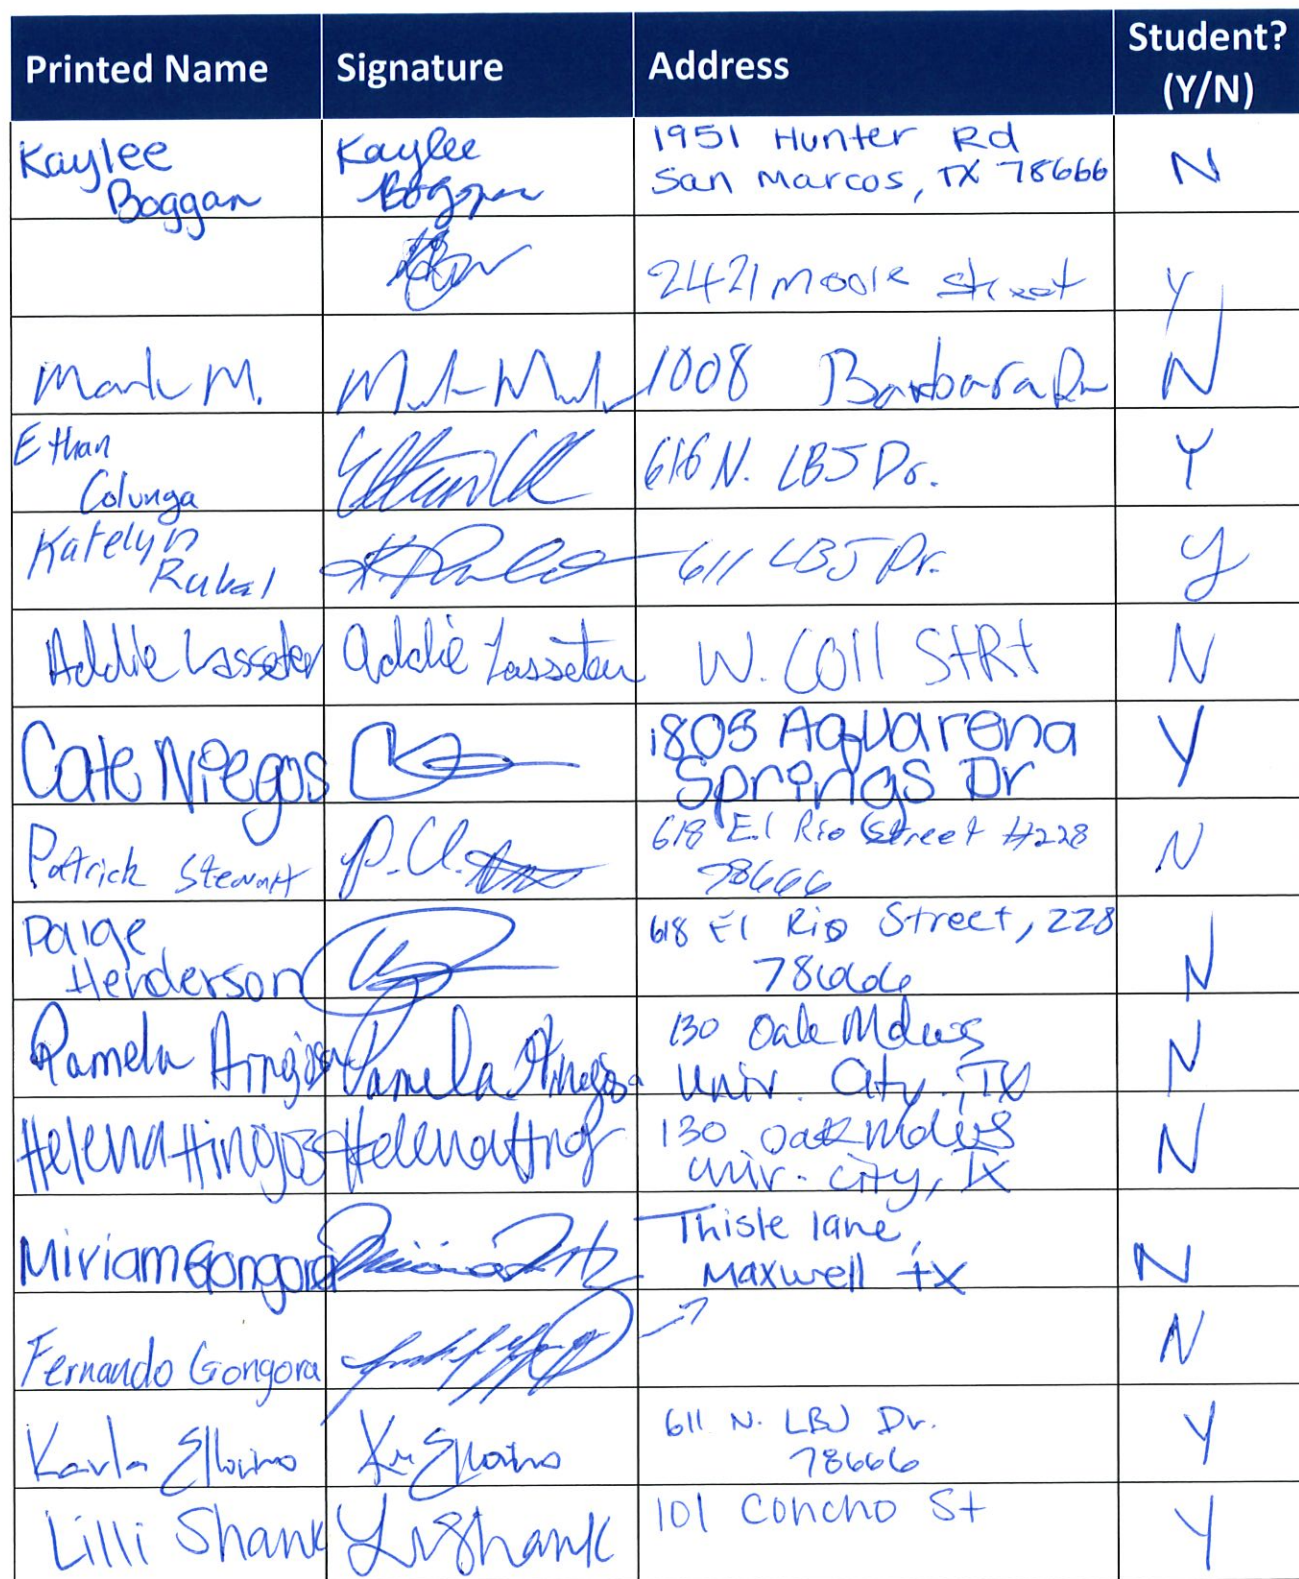 Printed Name Signature Address Student? (Y/N)
Kaylee Boggan Kaylee Boggan 1951 Hunter Rd San Marcos, TX 78666 N
2421 Moore Street Y
Mark M. 1008 Barbara Dr N
Ethan Colunga 616 N. LBJ Dr. Y
Katelyn Rubal 611 LBJ Dr. y
Addie Lasseter Addie Lasseter W. Coll StRt N
Cate Niegos 1805 Aquarena Springs Dr Y
Patrick Stewart 618 El Rio Street #228 78666 N
Paige Henderson 618 El Rio Street, 228 78666 N
Pamela Pamela 130 Oak Mdws Univ. City, TX N
Helena Helena 130 Oak Mdws Univ. City, TX N
Miriam Gongora Thisle lane, Maxwell TX N
Fernando Gongora → N
Karla 611 N. LBJ Dr. 78666 Y
Lilli Shank Shank 101 Concho St Y